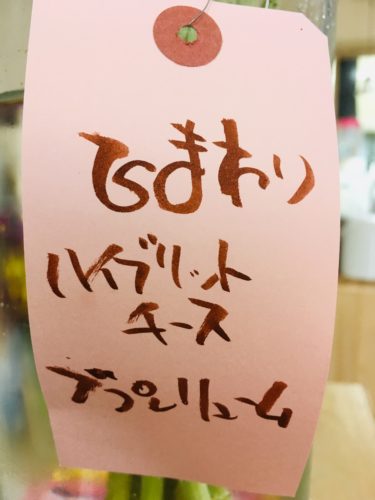 ひまわり
ハイブリット
チース
ブプレリューム